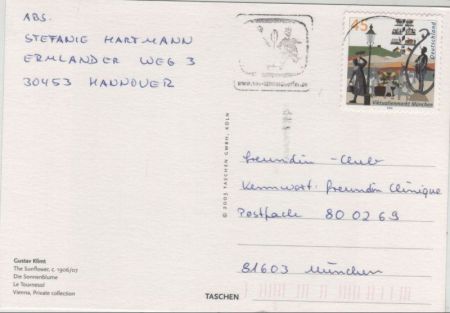 ABS.
STEFANIE HARTMANN
ERMLANDER WEG 3
30453 HANNOVER
45
Deutschland
Viktualienmarkt München
freundin-Club
Kennwort: freundin Clinique
Postfach 80 02 69
81603 München
© 2003 TASCHEN GMBH, KÖLN
Gustav Klimt
The Sunflower, c. 1906/07
Die Sonnenblume
Le Tournesol
Vienna, Private collection
TASCHEN